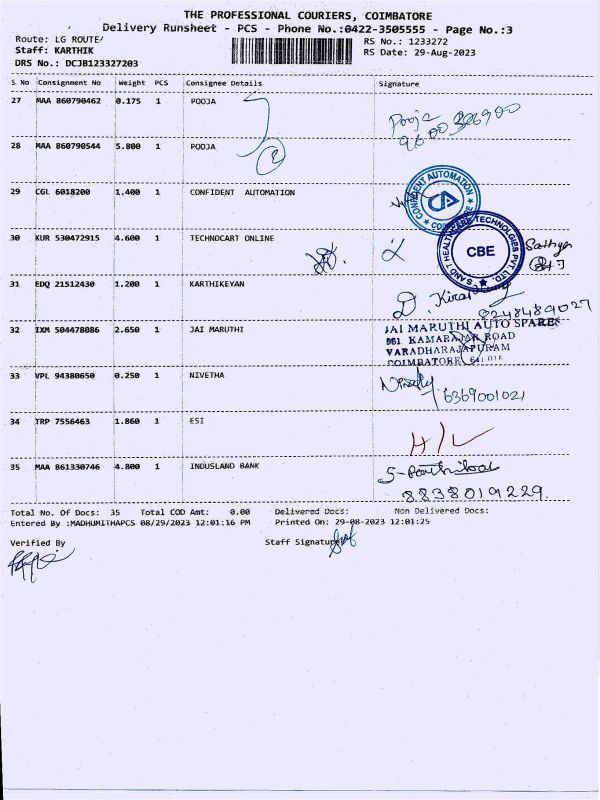 THE PROFESSIONAL COURIERS, COIMBATORE
Delivery Runsheet - PCS - Phone No.:0422-3505555 - Page No.:3
Route: LG ROUTE/ RS No.: 1233272
Staff: KARTHIK RS Date: 29-Aug-2023
DRS No.: DCJB123327203
S. No Consignment No Weight PCS Consignee Details Signature
27 MAA 860790462 0.175 1 POOJA Pooja
28 MAA 860790544 5.800 1 POOJA
2
29 CGL 6018200 1.400 1 CONFIDENT AUTOMATION
CONFIDENT AUTOMATION
CA
30 KUR 530472915 4.600 1 TECHNOCART ONLINE
S AND T HEALTHCARE TECHNOLOGIES PVT. LTD.
CBE
31 EDQ 21512430 1.200 1 KARTHIKEYAN
8248489027
32 IXM 504478086 2.650 1 JAI MARUTHI JAI MARUTHI AUTO SPARES
881 KAMARAJAR ROAD
VARADHARAJAPURAM
COIMBATORE 641 015
33 VPL 94380650 0.250 1 NIVETHA
6369001021
34 TRP 7556463 1.860 1 ESI
35 MAA 861330746 4.800 1 INDUSLAND BANK
8838019229.
Total No. Of Docs: 35 Total COD Amt: 0.00 Delivered Docs: Non Delivered Docs:
Entered By :MADHUMITHAPCS 08/29/2023 12:01:16 PM Printed On: 29-08-2023 12:01:25
Verified By Staff Signature